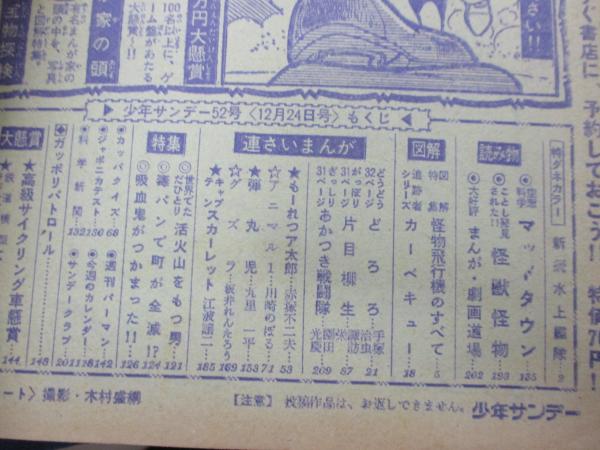 く書店に、予約しておこう！
特価70円！
さい!!
万円大懸賞
100名に上に、ゲ
ーム盤があたる
大懸賞…!!
家の頭
宝物探検
有名まんが家の
頭の中を、写真
と図解特集。
▷少年サンデー52号〈12月24日号〉もくじ◁
特ダネカラー
新式水上艦隊…2
読み物
空想科学 マッドタウン…135
ことし発見された!! 怪獣怪物…193
大好評 まんが・劇画道場…202
図解
図解特集 怪物飛行機のすべて…5
追跡者シリーズ カーベキュー…18
連さいまんが
どうどう32ページ どろろ 手塚治虫…21
がっぽり31ページ 片目柳生 諏訪栄…87
ぎっしり31ページ あかつき戦闘隊 園田光慶…209
★もーれつア太郎…赤塚不二夫…53
☆アニマル1…川崎のぼる…71
★弾丸児…九里一平…153
☆グズラ…板井れんたろう…169
★キャプテンスカーレット…江波譲二…185
特集
◎世界でただひとり 活火山をもつ男…121
◎毒パンで町が全滅!?…124
◎吸血鬼がつかまった!!…126
●カッパクイズ…68
●ジャポニカテスト…130
●科学新聞…132
●週刊パーマン…142
●今週のカレンダー…118
●サンデークラブ…201
◆ガッポリパトロール…148
大懸賞
★高級サイクリング車懸賞…144
ート〉撮影・木村盛綱
【注意】投稿作品は、お返しできません。
少年サンデー